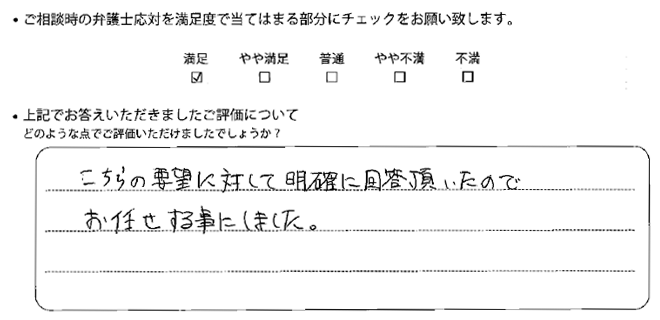 ・ご相談時の弁護士応対を満足度で当てはまる部分にチェックをお願い致します。
満足 やや満足 普通 やや不満 不満
☑ □ □ □ □
・上記でお答えいただきましたご評価について
どのような点でご評価いただけましたでしょうか？
こちらの要望に対して明確に回答頂いたので
お任せする事にしました。